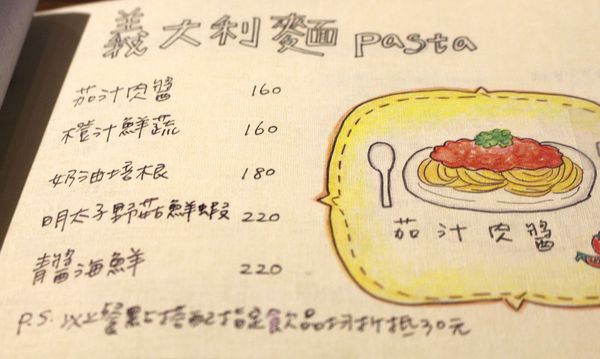 義大利麵 pasta
茄汁肉醬 160
橙汁鮮蔬 160
奶油培根 180
明太子野菇鮮蝦 220
青醬海鮮 220
茄汁肉醬
P.S. 以上餐點搭配指定飲品均折抵30元